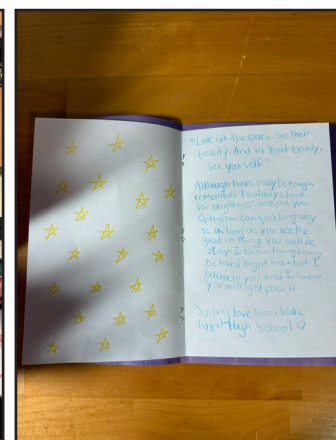 "Look at the stars. See their
beauty. And in that beauty,
see yourself."
Although times may be tough
remember to always look
for brightness around you.
Optimism can go a long way
so as long as you see the
good in things you will be
okay. I know things may
be hard right now but I
believe in you and I know
you will get past it.
Sending love from Wake
Forest High School ♡